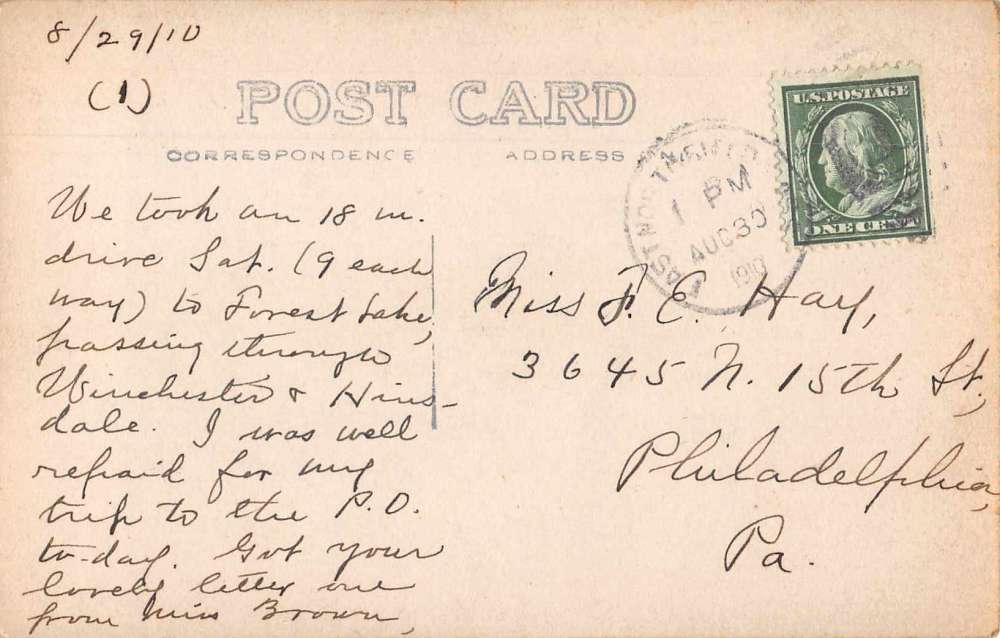 8/29/10
(1)
POST CARD
CORRESPONDENCE ADDRESS
U.S. POSTAGE
ONE CENT
EAST NORTHFIELD
1 PM
AUG 30
1910
We took an 18 m.
drive Sat. (9 each
way) to Forest Lake,
passing through
Winchester & Hins-
dale. I was well
repaid for my
trip to the P.O.
to-day. Got your
lovely letter one
from Miss Brown,
Miss F. E. Hay,
3645 N. 15th St,
Philadelphia,
Pa.